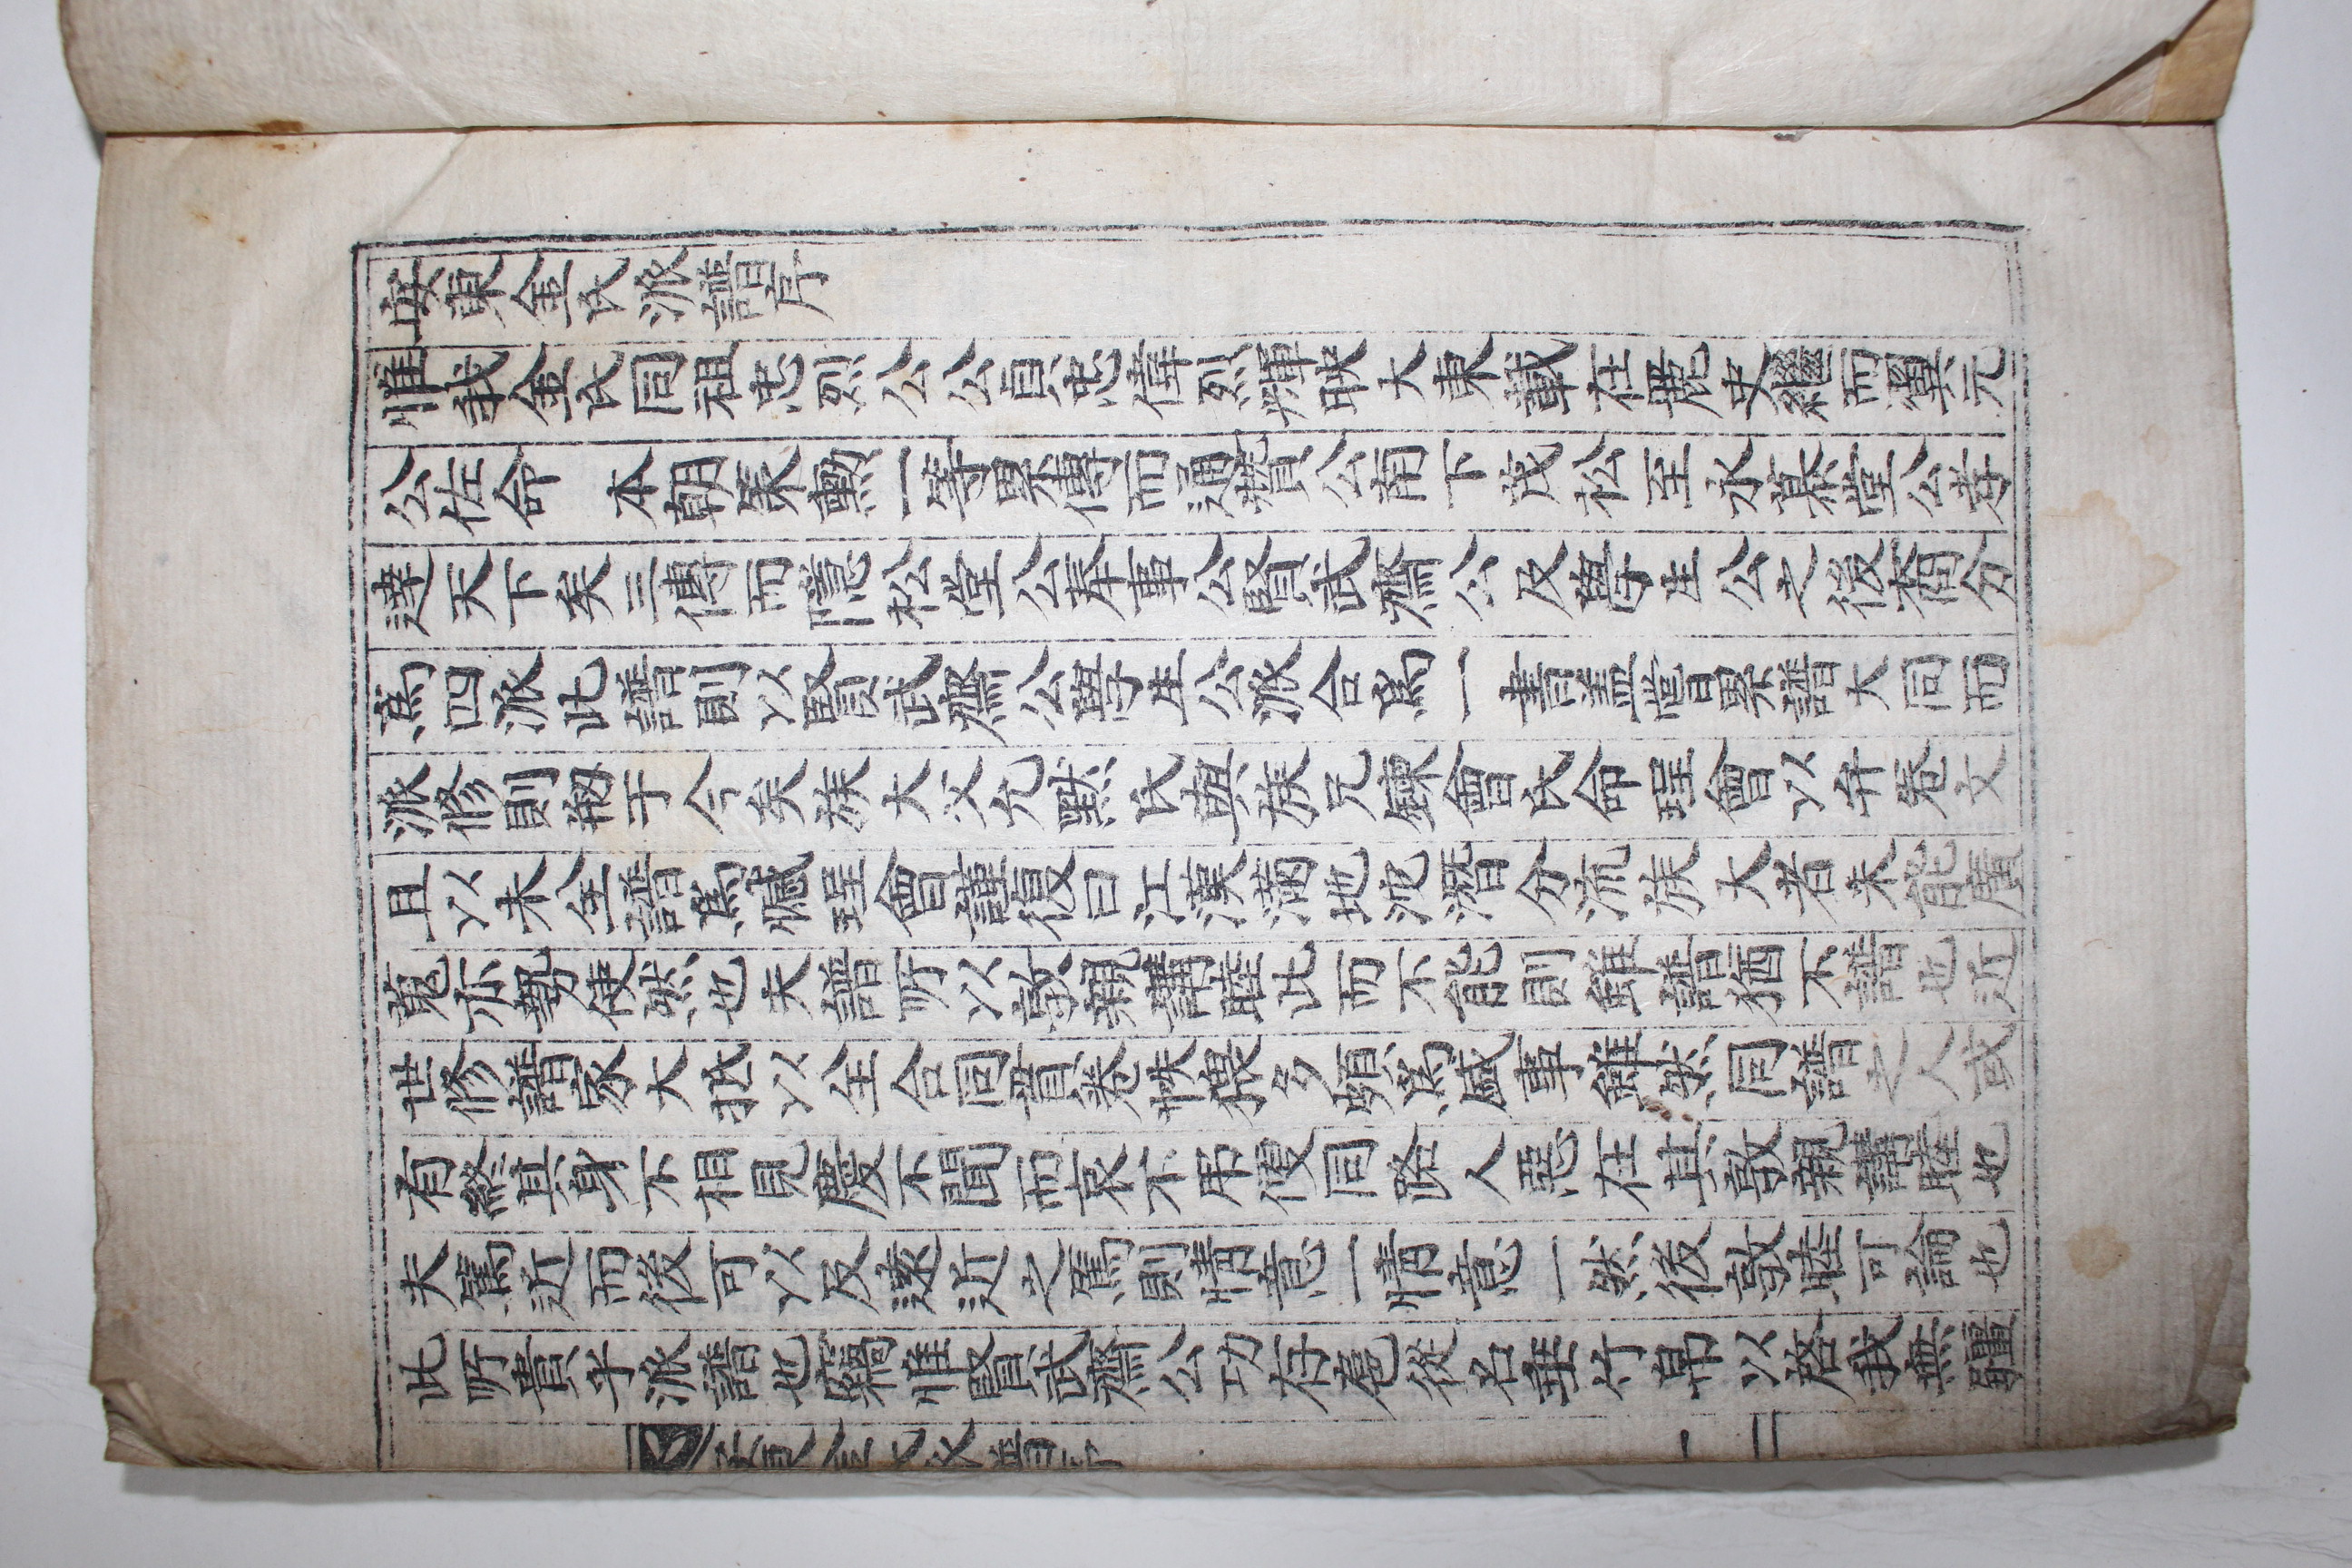 安東金氏派譜序
惟我金氏同祖忠烈公公貞忠偉烈輝暎大東載在麗史繼而翼元
公佐命　本朝策勲一等累傳而通贊公南下茂松至永慕堂公孝
達天下矣三傳而隱松堂公奉事公賢武齋公及學生公之後裔分
爲四派此譜則以賢武齋公學生公派合爲一書盖曾累譜大同而
派修則刱于今矣族大父允默氏與族兄錬會氏命珵會以弁卷文
且以未全譜爲憾珵會謹復曰江漢滿地沱潛分流族大者未能廣
蒐亦勢使然也夫譜所以敦親講睦此而不能則雖譜猶不譜也近
世修譜家大抵以全合同貫卷帙稠多頗爲盛事雖然同譜之人或
有終其身不相見慶不聞而哀不吊便同路人惡在其敦親講睦也
夫篤近而後可以及遠近之篤則情意一情意一然後敦睦可論也
此所貴乎派譜也竊惟賢武齋公功存扈從名垂竹帛以啓我無疆
安東金氏派譜序　一　二